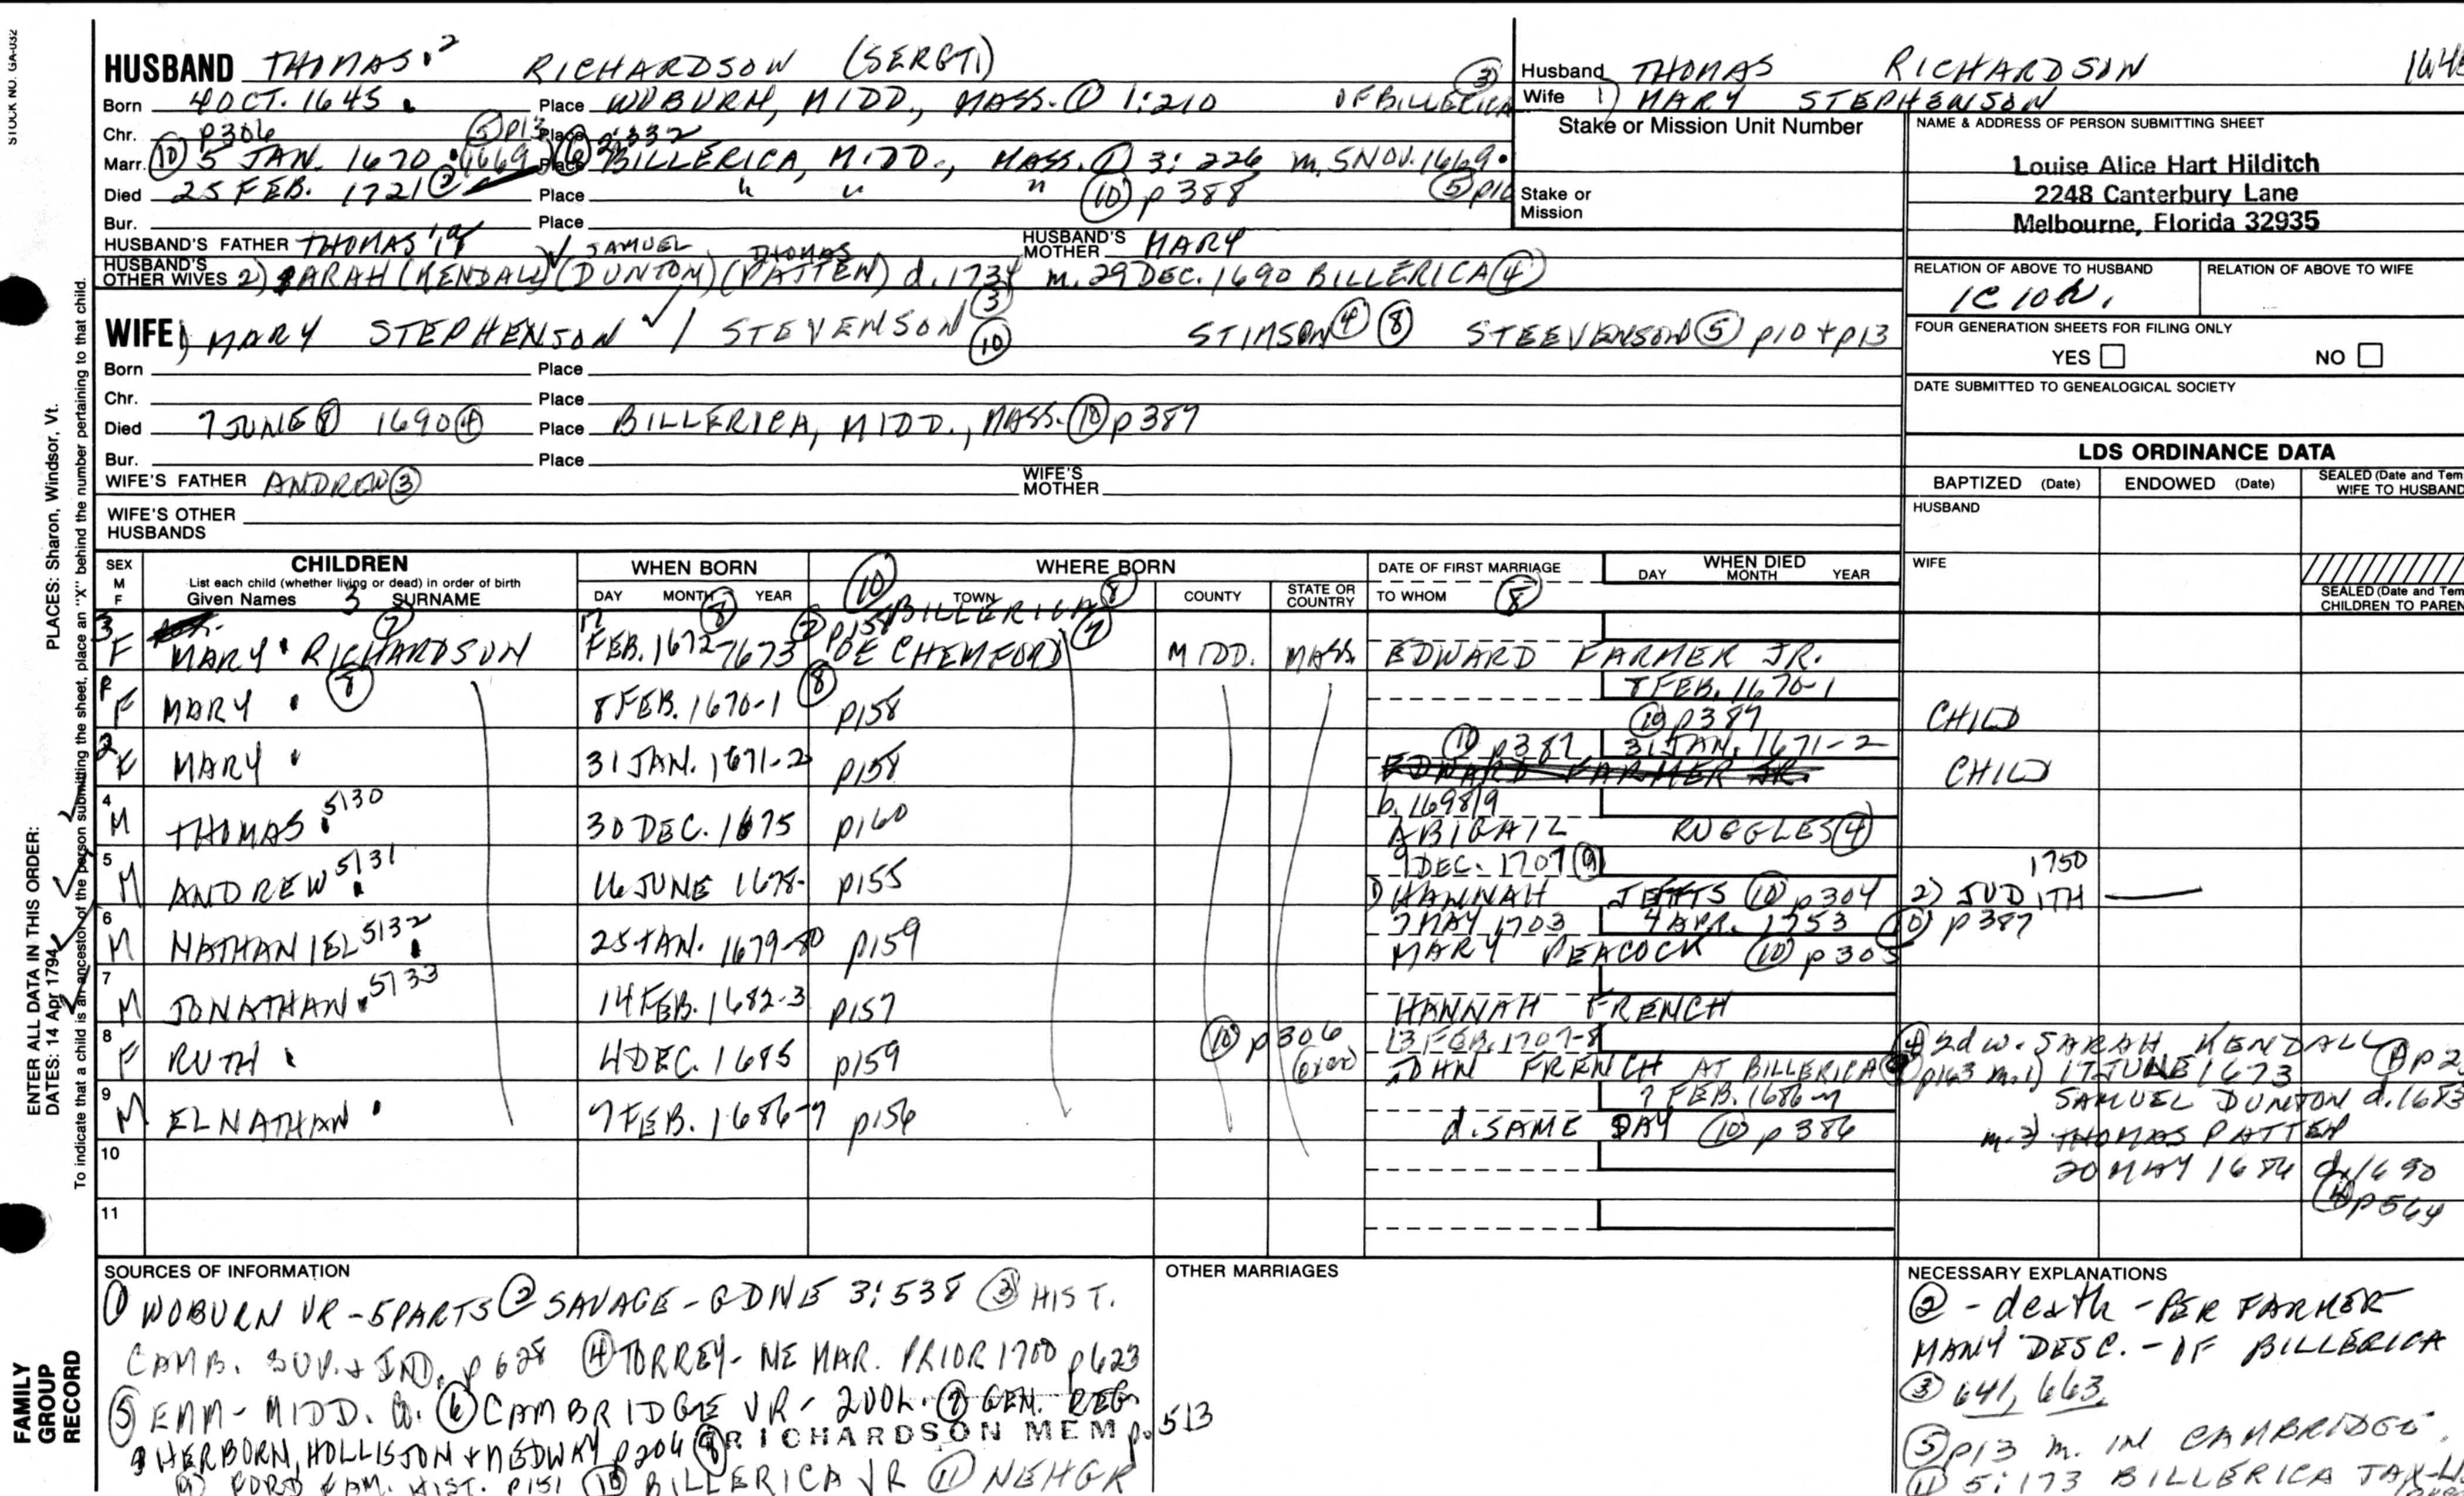 STOCK NO. GA-032
HUSBAND THOMAS.² RICHARDSON (SERGT.)
Born 4 OCT. 1645. Place WOBURN, MIDD., MASS. ① 1:210 OF BILLERICA ③
Chr. p306 ⑤ p13 Place ⑥ 2:332
Marr. ⑩ 5 JAN. 1670 (1669) Place BILLERICA, MIDD., MASS. ① 3:226 m. 5 NOV. 1669.
Died 25 FEB. 1721 ② Place " " " ⑩ p388 ⑤ p10
Bur. Place
HUSBAND'S FATHER THOMAS HUSBAND'S MOTHER MARY
SAMUEL THOMAS
HUSBAND'S OTHER WIVES 2) SARAH (KENDALL) (DUNTON) (PATTEN) d. 1734 m. 29 DEC. 1690 BILLERICA ④
WIFE 1) MARY STEPHENSON ✓ / STEVENSON ③ ⑩ STIMSON ④ ⑧ STEEVENSON ⑤ p10 + p13
Born Place
Chr. Place
Died 7 JUNE ⑧ 1690 ④ Place BILLERICA, MIDD., MASS. ⑩ p389
Bur. Place
WIFE'S FATHER ANDREW ③ WIFE'S MOTHER
WIFE'S OTHER HUSBANDS
Husband THOMAS RICHARDSON 1645
Wife 1) MARY STEPHENSON
Stake or Mission Unit Number
Stake or Mission
NAME & ADDRESS OF PERSON SUBMITTING SHEET
Louise Alice Hart Hilditch
2248 Canterbury Lane
Melbourne, Florida 32935
RELATION OF ABOVE TO HUSBAND RELATION OF ABOVE TO WIFE
1C 10R.
FOUR GENERATION SHEETS FOR FILING ONLY
YES NO
DATE SUBMITTED TO GENEALOGICAL SOCIETY
LDS ORDINANCE DATA
BAPTIZED (Date) ENDOWED (Date) SEALED (Date and Tem WIFE TO HUSBAND
HUSBAND
WIFE
SEALED (Date and Tem CHILDREN TO PAREN
SEX M F CHILDREN List each child (whether living or dead) in order of birth Given Names SURNAME 3
WHEN BORN DAY MONTH YEAR ⑧
WHERE BORN ⑩ TOWN COUNTY STATE OR COUNTRY
DATE OF FIRST MARRIAGE TO WHOM ⑧
WHEN DIED DAY MONTH YEAR
17 p158 BILLERICA ⑧
3 F MARY. RICHARDSON ⑦ FEB. 1672 1673 ⑦ OF CHEMFORD ⑦ MIDD. MASS. EDWARD FARMER JR.
F MARY. ⑧ 8 FEB. 1670-1 ⑧ p158 8 FEB. 1670-1 ⑩ p389 CHILD
2 F MARY. 31 JAN. 1671-2 p158 ⑩ p387 31 JAN. 1671-2 EDWARD FARMER JR. CHILD
4 M THOMAS. 5130 30 DEC. 1675 p160 b. 1698/9 ABIGAIL RUGGLES ④
5 M ANDREW. 5131 16 JUNE 1678. p155 9 DEC. 1707 ⑨ 1) HANNAH JEFTS ⑩ p304 1750 2) JUDITH —
6 M NATHANIEL. 5132 25 JAN. 1679-80 p159 7 MAY 1703 4 APR. 1753 ⑩ p387 MARY PEACOCK ⑩ p305
7 M JONATHAN. 5133 14 FEB. 1682-3 p157 HANNAH FRENCH
8 F RUTH. 4 DEC. 1685 p159 ⑩ p306 (over) 13 FEB. 1707-8 JOHN FRENCH AT BILLERICA
9 M ELNATHAN. 7 FEB. 1686-7 p156 7 FEB. 1686-7 d. SAME DAY ⑩ p386
10
11
④ 2d w. SARAH KENDALL
p163 m. 1) 17 JUNE 1673
SAMUEL DUNTON d. 1683
m. 2) THOMAS PATTEN
20 MAY 1686 d. 1690
④ p564
SOURCES OF INFORMATION
① WOBURN VR - 5 PARTS ② SAVAGE - GDNE 3:538 ③ HIST.
CAMB. SUP. + IND. p 628 ④ TORREY - NE MAR. PRIOR 1700 p623
⑤ EMM - MIDD. Co. ⑥ CAMBRIDGE VR - 2 VOL. ⑦ GEN. REG.
SHERBORN, HOLLISTON + MEDWAY p204 ⑧ RICHARDSON MEM p. 513
⑨ FORD FAM. HIST. p151 ⑩ BILLERICA VR ⑪ NEHGR
OTHER MARRIAGES
NECESSARY EXPLANATIONS
② - death - PER FARMER
MANY DESC. - OF BILLERICA
③ 641, 663,
⑤ p13 m. IN CAMBRIDGE.
⑪ 5:173 BILLERICA TAX-LIS
PLACES: Sharon, Windsor, Vt.
ENTER ALL DATA IN THIS ORDER:
DATES: 14 Apr 1794
To indicate that a child is an ancestor of the person submitting the sheet, place an "X" behind the number pertaining to that child.
FAMILY GROUP RECORD